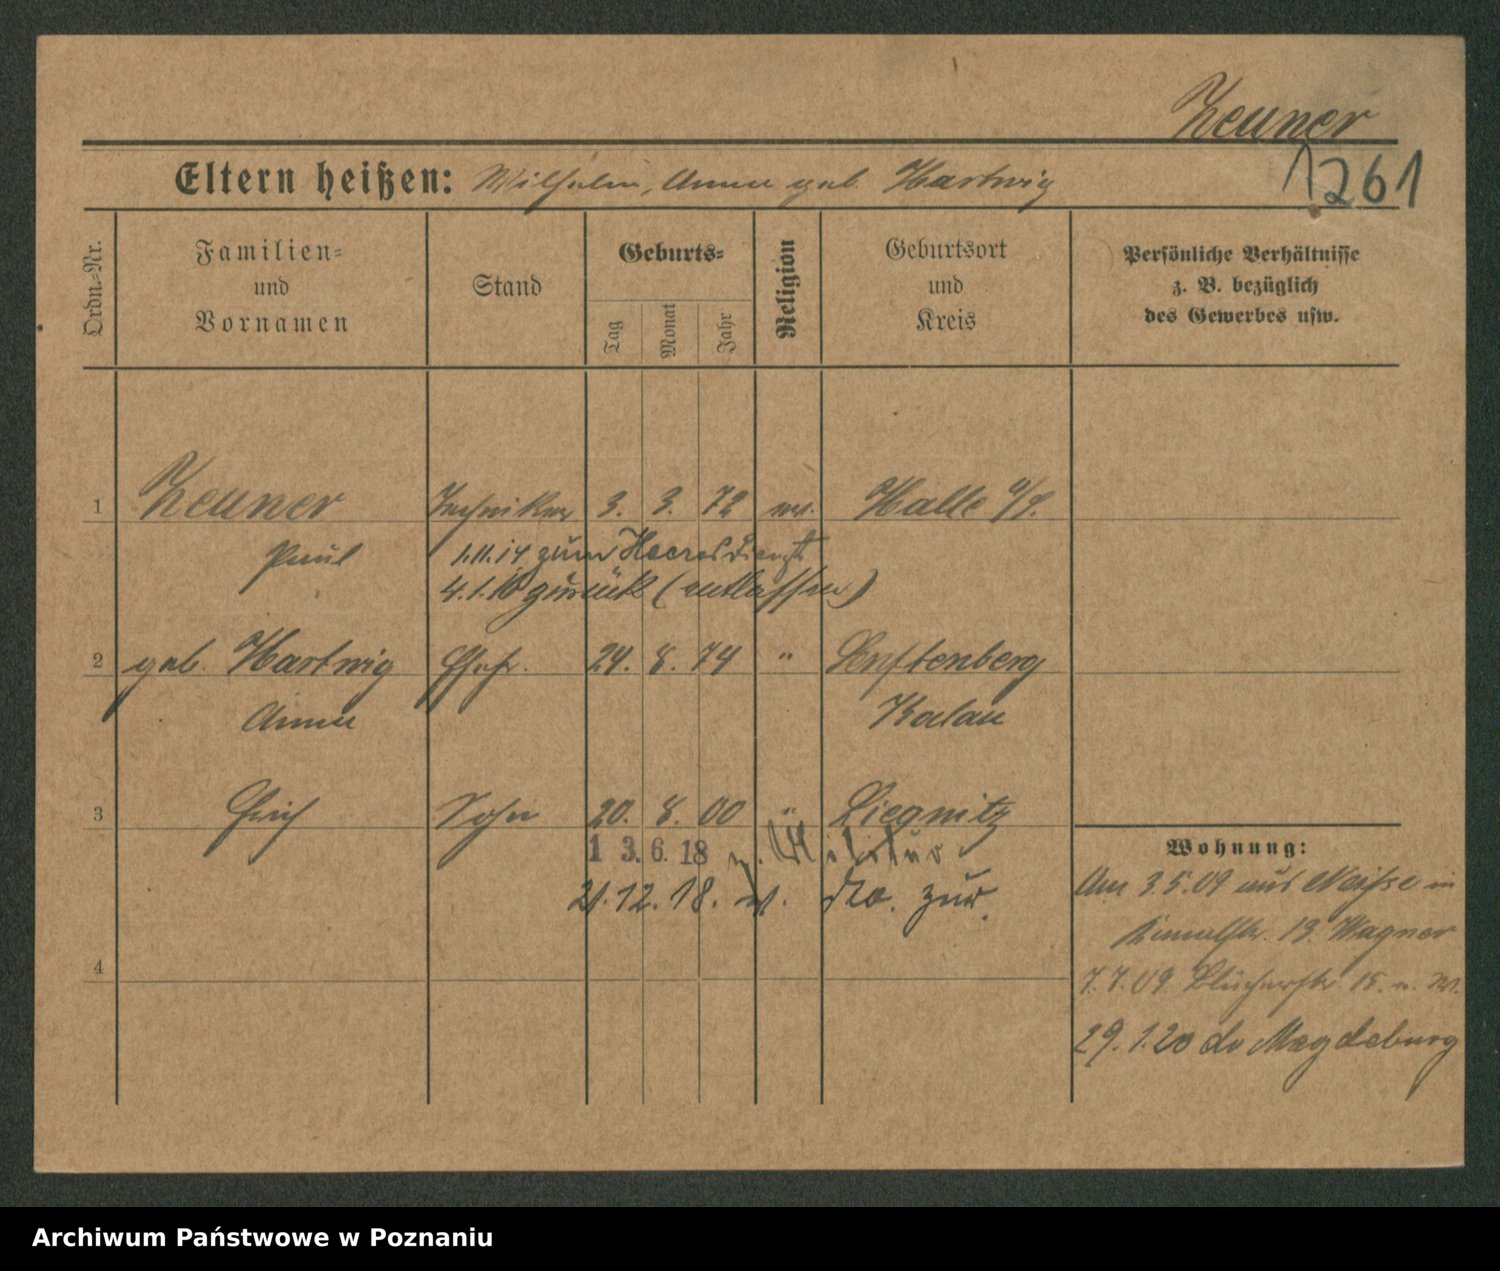 Zeuner
1261
Eltern heißen: Wilhelm, Anna geb. Hartwig
Ordn.-Nr.
Familien-
und
Vornamen
Stand
Geburts-
Tag
Monat
Jahr
Religion
Geburtsort
und
Kreis
Persönliche Verhältnisse
z. B. bezüglich
des Gewerbes usw.
1 Zeuner Techniker 3. 3. 72 ev. Halle a/S.
Paul 1.11.14 zum Heeresdienst
4.1.16 zurück (entlassen)
2 geb. Hartwig Ehefr. 24. 8. 74 " Senftenberg
Anna Kalau
3 Erich Sohn 20. 8. 00 " Liegnitz
1 3. 6. 18 z. Militär
21.12.18. v. do. zur.
4
Wohnung:
Am 3.5.09 aus Neisse in
13. Wagner
7.7.09 Blücherstr. 15. n. W.
29.1.20 do Magdeburg
Archiwum Państwowe w Poznaniu